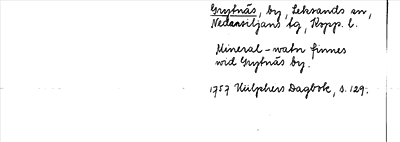 Grytnäs, by, Leksands sn,
Nedansiljans tg, Kopp. l.
Mineral-watn finnes
wid Grytnäs by.
1757 Hülphers Dagbok, s. 129.